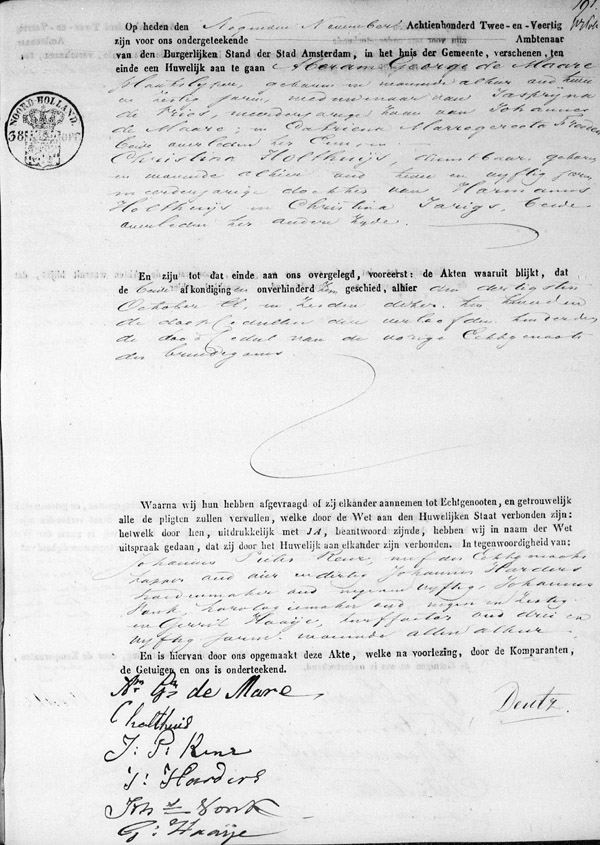 191
Op heden den Negenden November Achtienhonderd Twee-en-Veertig
zijn voor ons ondergeteekende Ambtenaar
van den Burgerlijken Stand der Stad Amsterdam, in het huis der Gemeente, verschenen, ten
einde een Huwelijk aan te gaan Abram George de Maare
geboren en wonende alhier oud
en zestig jaren, weduwnaar van Jaspijna
de Vries meerderjarige zoon van Johannes
de Maare, en Catriena Margereeta
beide overleden ter Eenre, en
Christina Holthuijs, dienstbaar, geboren
en wonende alhier oud en vyftig jaren
meerderjarige dochter van Harmanus
Holthuijs en Christina Jarigs, beide
overleden ter andere Zyde.
NOORD-HOLLAND
38
En zijn tot dat einde aan ons overgelegd, vooreerst: de Akten waaruit blijkt, dat
de beide afkondigingen onverhinderd zijn geschied, alhier den dertigsten
October ll. en Zesden dezer. ten tweeden
de doop Cedullen der verloofden ten derden
de dood Cedul van de vorige Echtgenoote
des bruidegoms.
Waarna wij hun hebben afgevraagd of zij elkander aannemen tot Echtgenooten, en getrouwelijk
alle de pligten zullen vervullen, welke door de Wet aan den Huwelijken Staat verbonden zijn:
hetwelk door hen, uitdrukkelijk met JA, beantwoord zijnde, hebben wij in naam der Wet
uitspraak gedaan, dat zij door het Huwelijk aan elkander zijn verbonden. In tegenwoordigheid van:
Johannes Pieter Kenz, neef des Echtgenoots
oud vier en dertig Johannes Harders
oud negen en vyftig, Johannes
Vonk, horologiemaker oud negen en Zestig
en Gerrit Haaije, oud drie en
vyftig jaren. wonende allen alhier
En is hiervan door ons opgemaakt deze Akte, welke na voorlezing, door de Komparanten,
de Getuigen en ons is onderteekend.
Am Gs de Mare,
Deutz.
C holthuis
J: P: Kenz
J: Harders
Joh s Vonk
G: Haaije